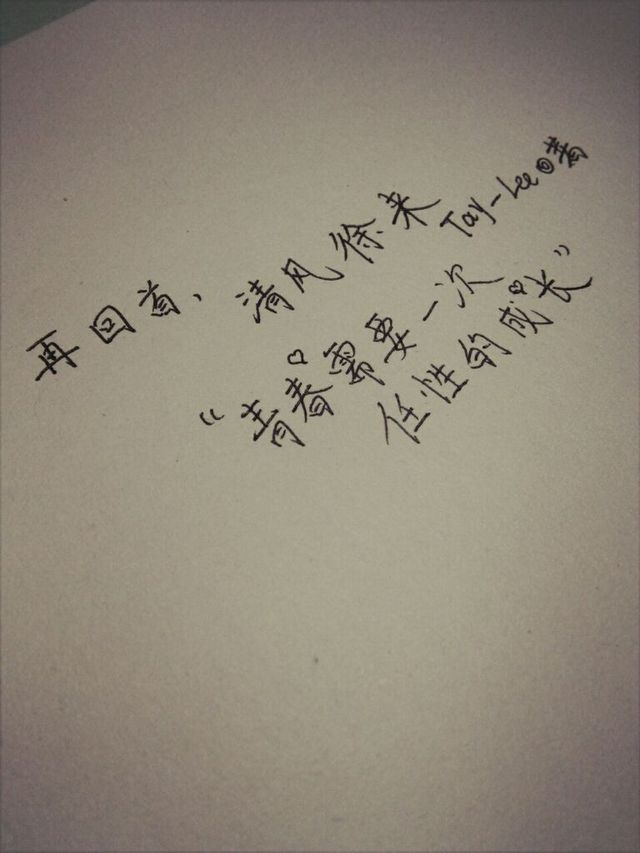 再回首、清风徐来 Tay-Lee@著
“青春需要一次
任性的成长”